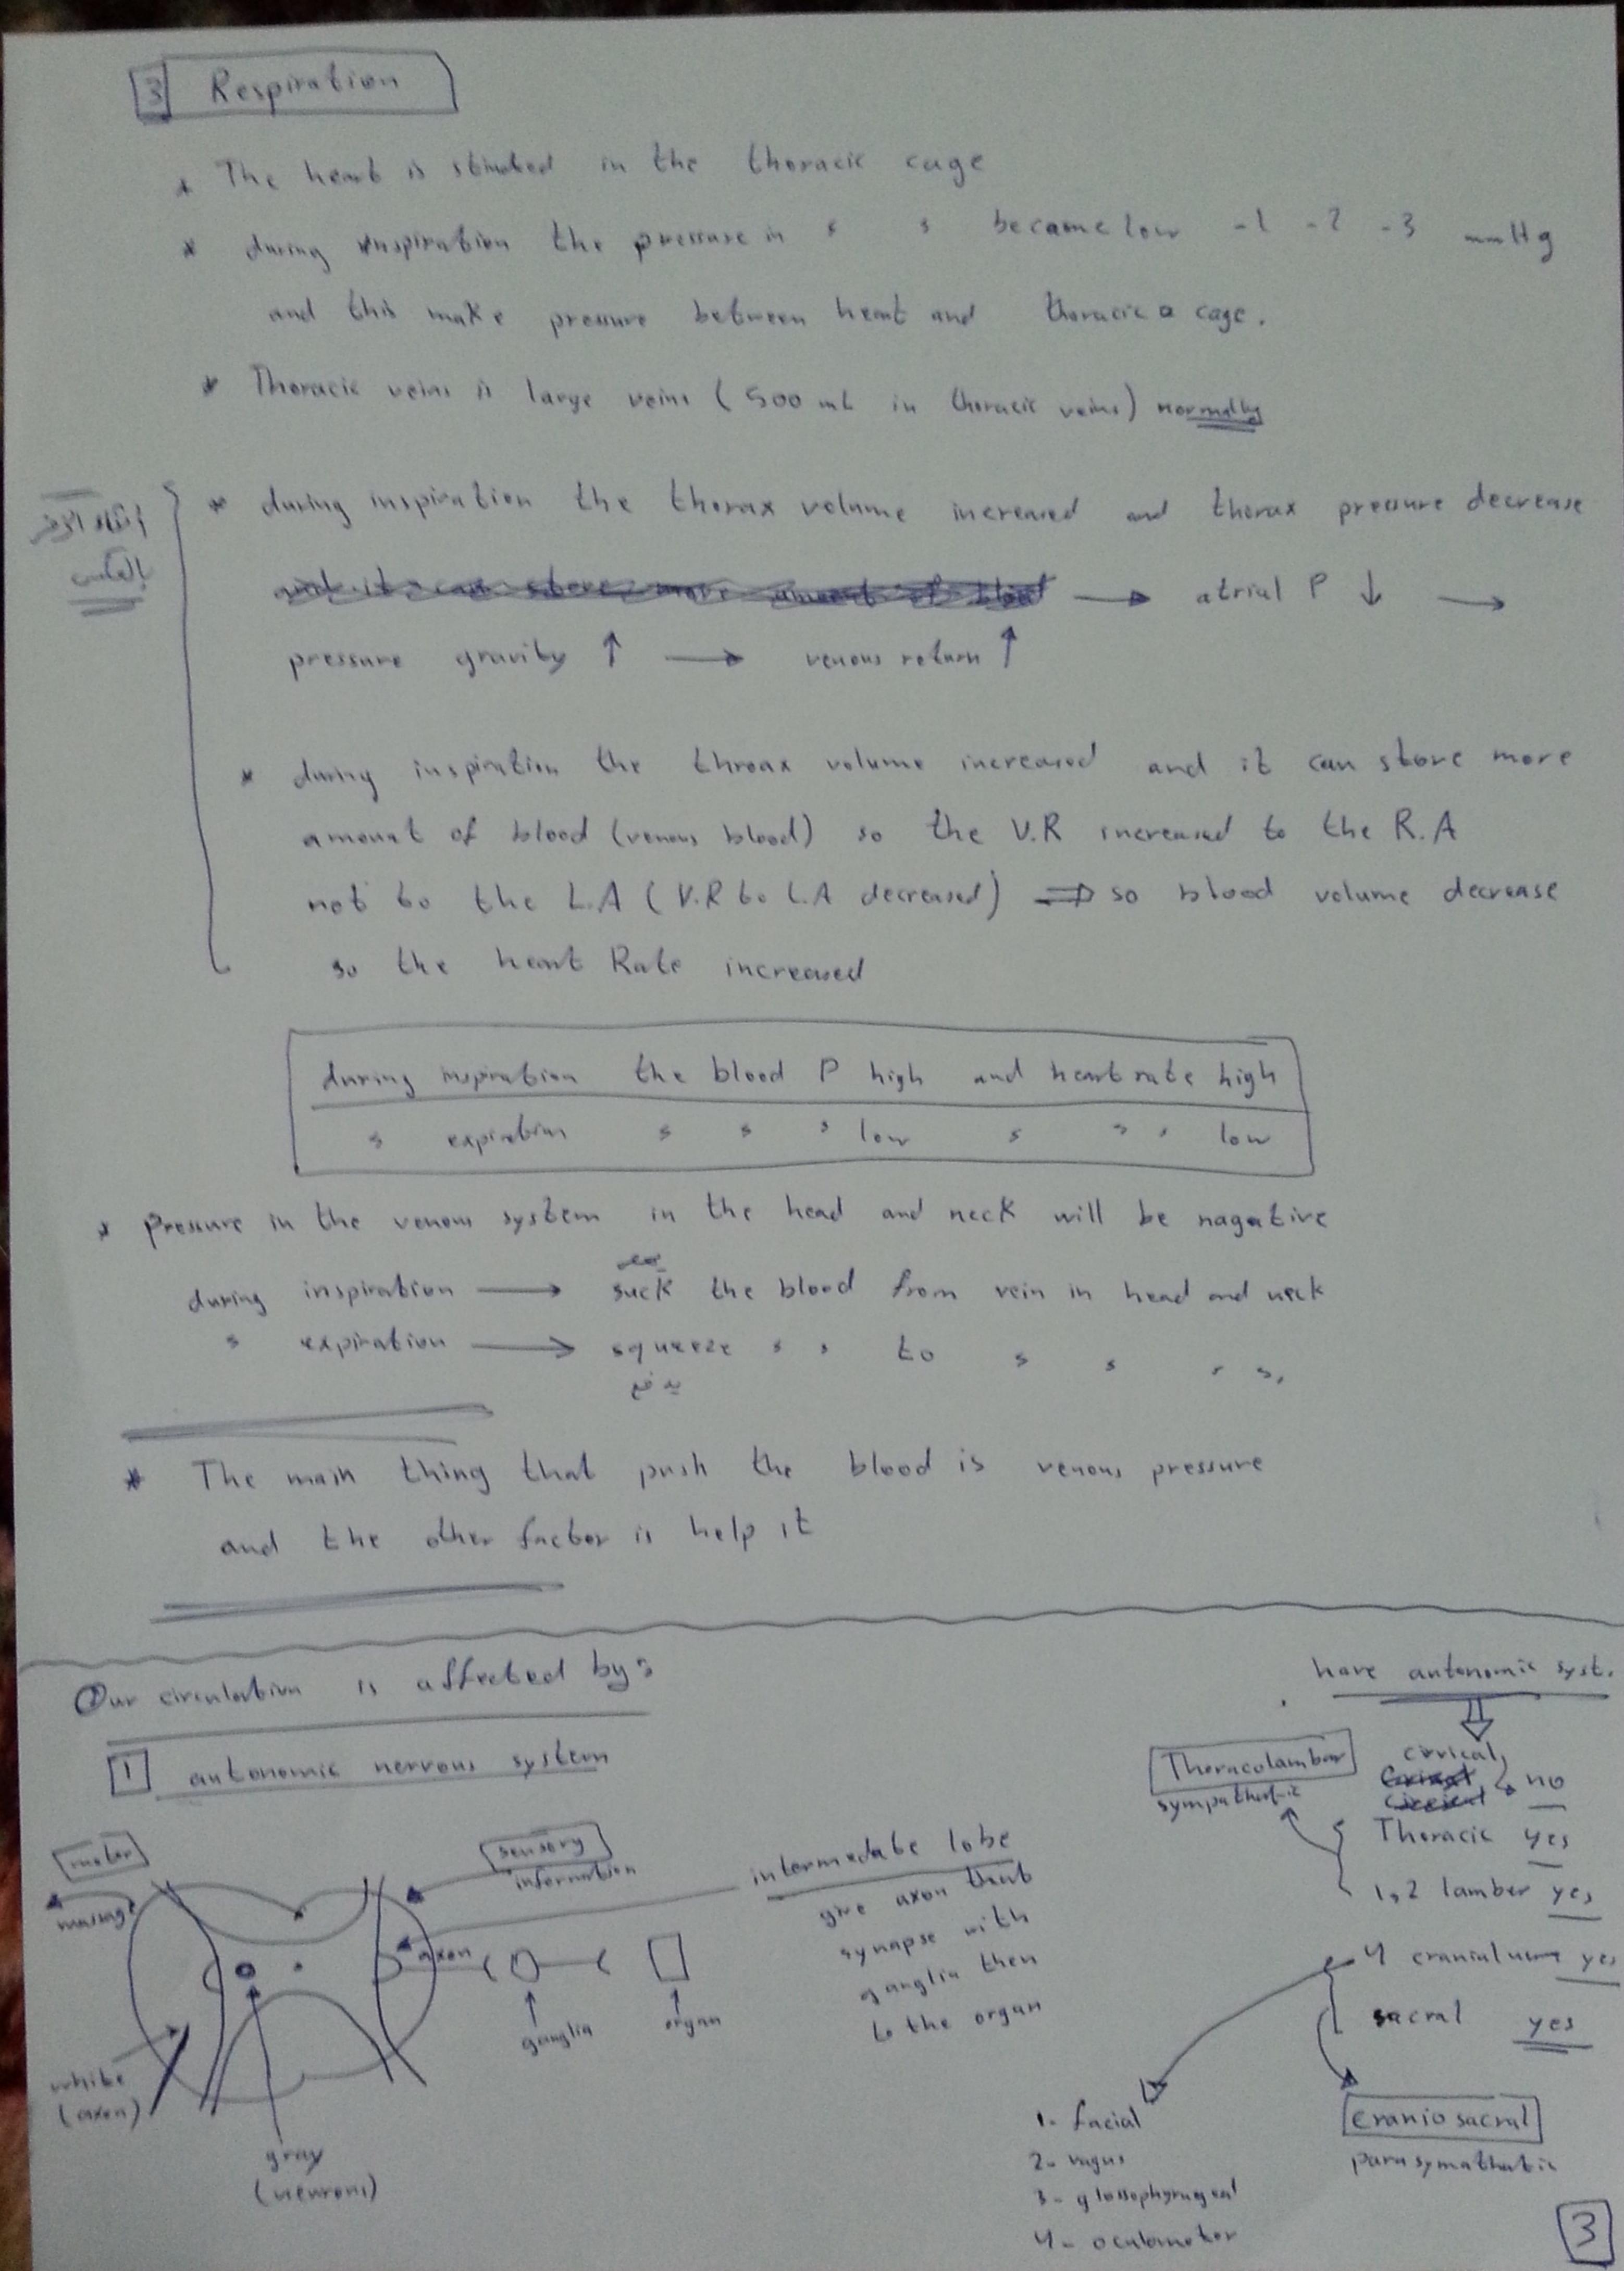 3 Respiration
* The heart is situated in the thoracic cage
* during inspiration the pressure in " " became low -1 -2 -3 mmHg
and this make pressure between heart and thoracic cage.
* Thoracic veins is large veins (500 mL in thoracic veins) normally
* during inspiration the thorax volume increased and thorax pressure decrease
→ atrial P ↓ →
pressure gravity ↑ → venous return ↑
* during inspiration the throax volume increased and it can store more
amount of blood (venous blood) so the V.R increased to the R.A
not to the L.A (V.R to L.A decreased) ⇒ so blood volume decrease
so the heart Rate increased
during inspiration the blood P high and heart rate high
" expiration " " " low " " " low
* Pressure in the venous system in the head and neck will be nagative
during inspiration → suck the blood from vein in head and neck
" expiration → squeeze " " to " " " ".
يدفع
* The main thing that push the blood is venous pressure
and the other factor is help it
Our circulation is affected by:
1 autonomic nervous system
motor
massage
sensory
information
intermedate lobe
give axon that
synapse with
ganglia then
to the organ
axon
ganglia
organ
white
(axon)
gray
(neurons)
have autonomic syst.
Thoracolambar
sympathatic
cirvical no
Thoracic yes
1,2 lamber yes
4 cranial yes
sacral yes
1- facial
2- vagus
3- glossophyrageal
4- oculomotor
cranio sacral
parasymathatic
3